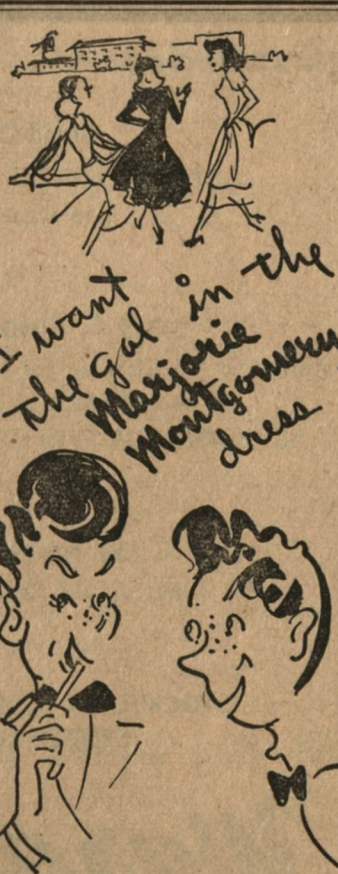 I want
the gal in the
Marjorie
Montgomery
dress